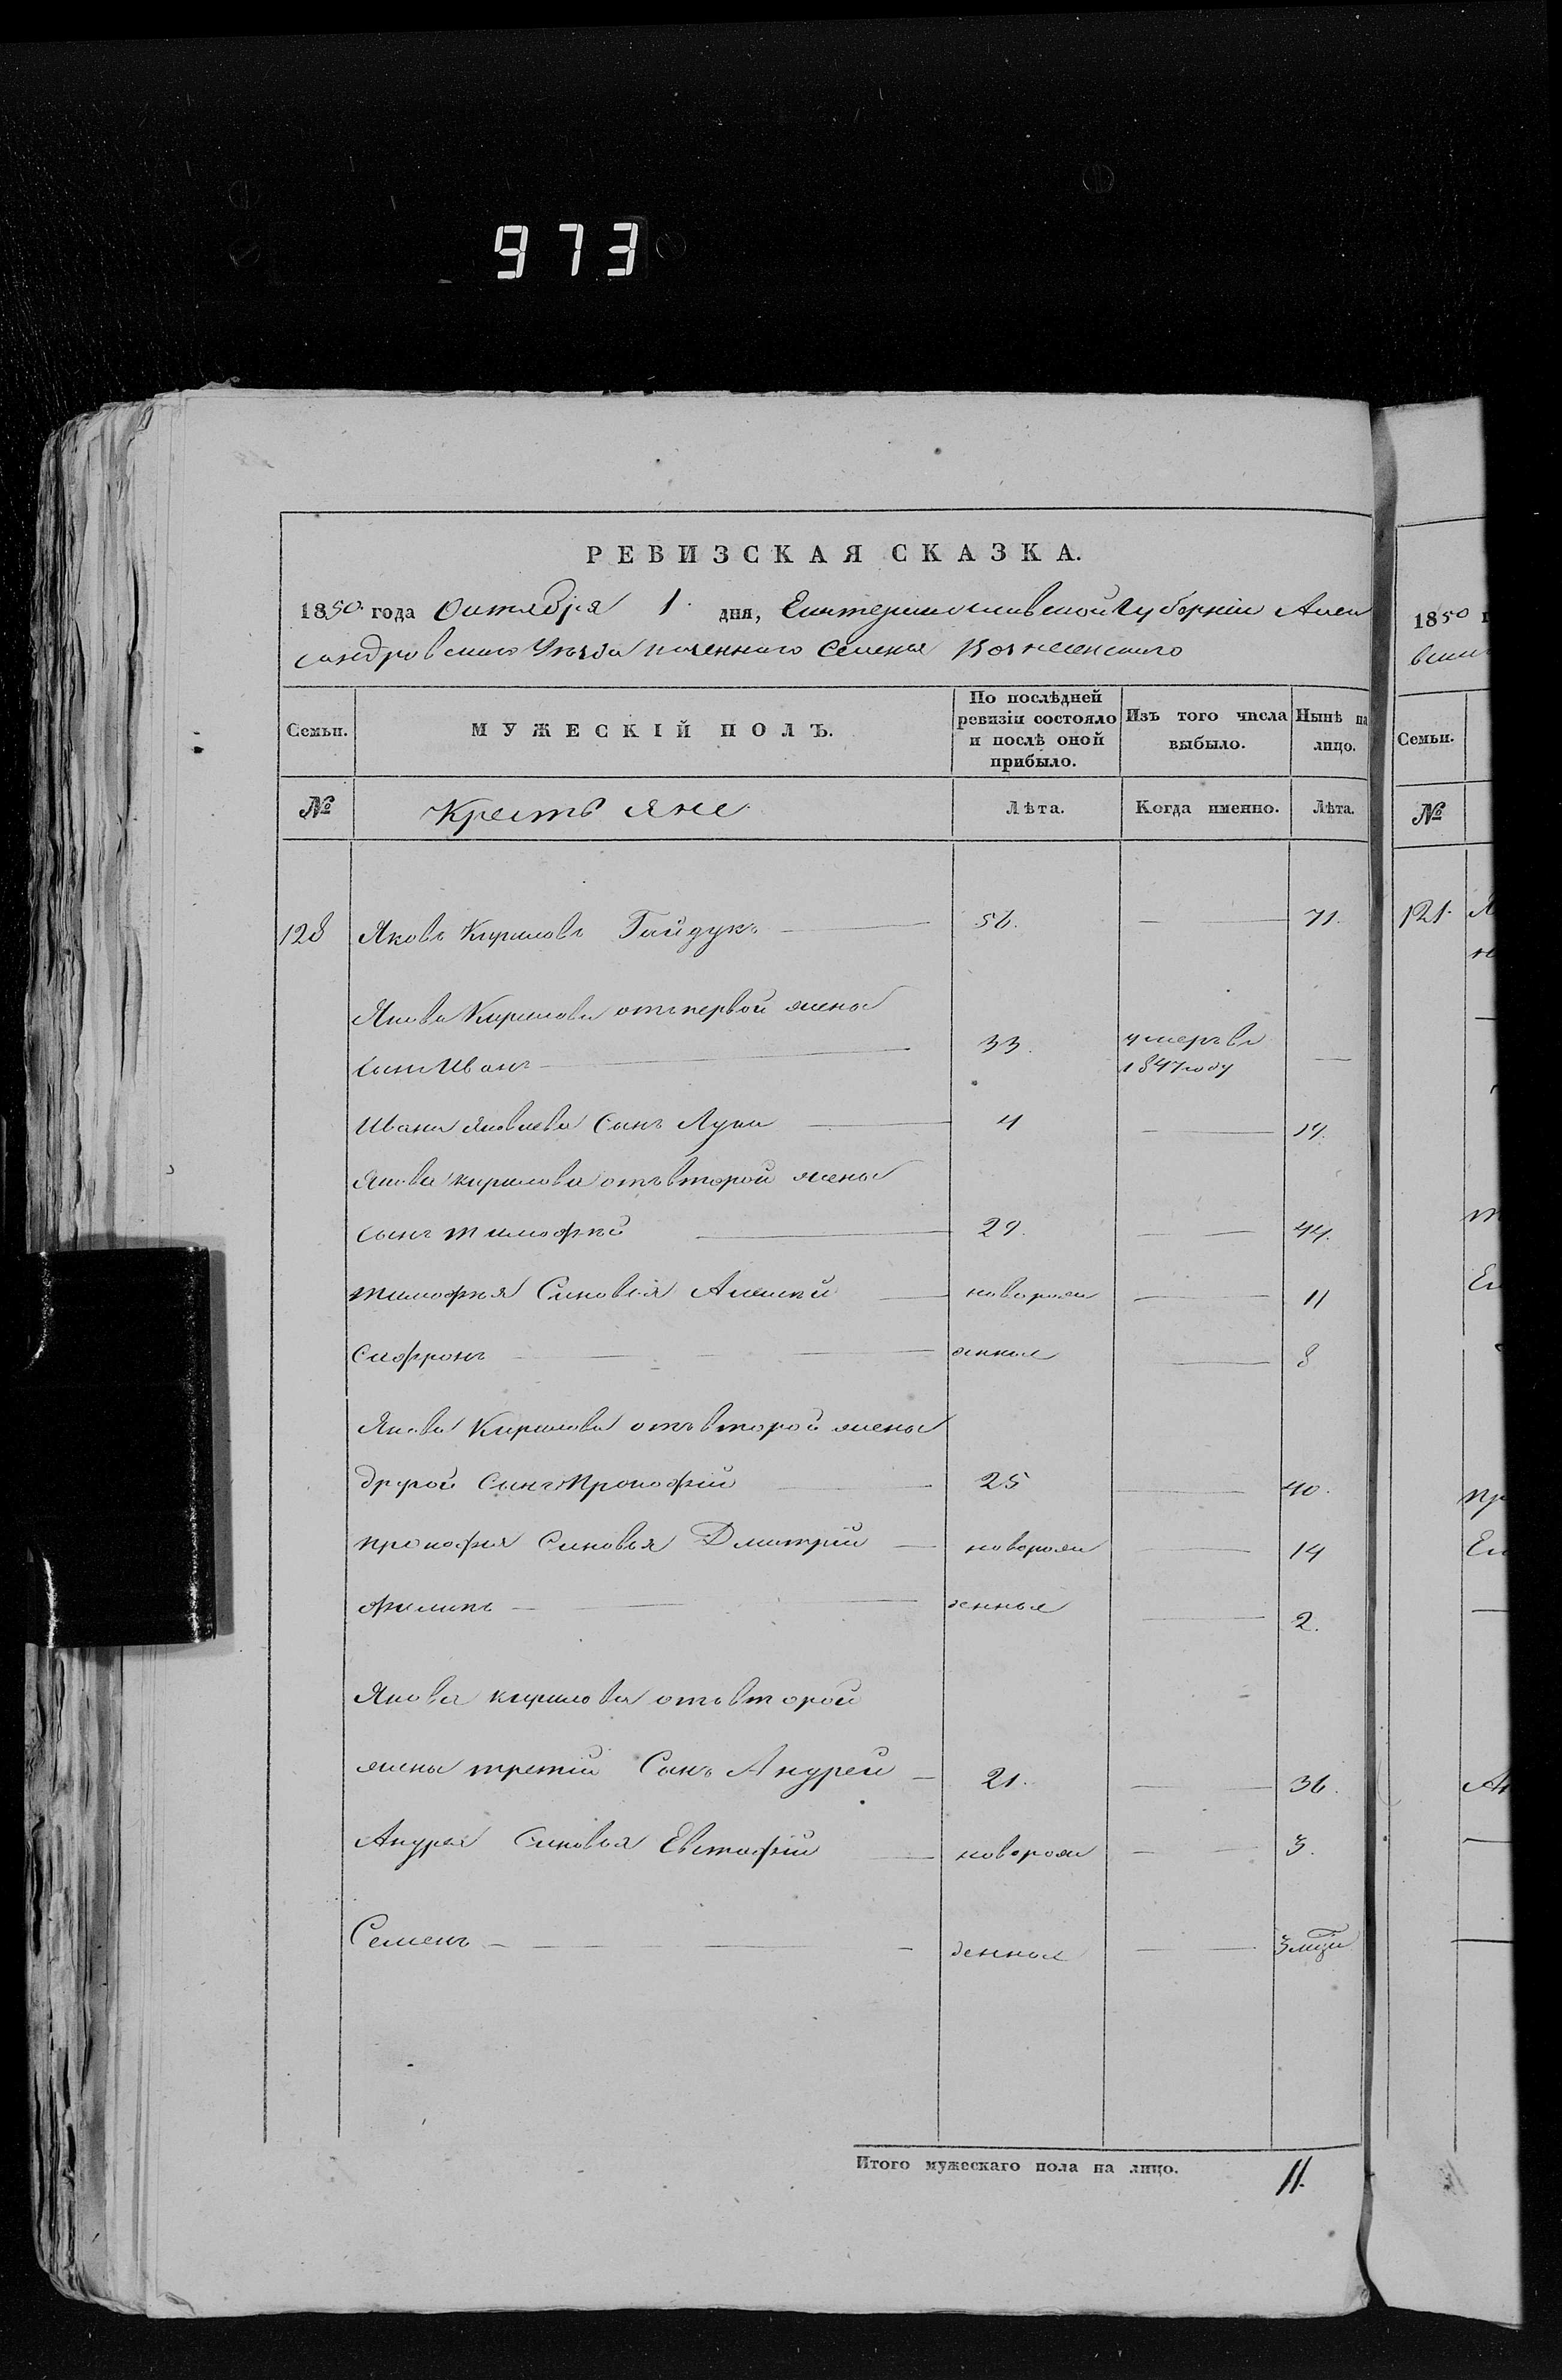 973
РЕВИЗСКАЯ СКАЗКА.
1850 года Октября 1. дня, Екатеринославской Губерніи Алек
сандровскаго Уѣзда казеннаго Селенія Вознесенскаго
Семьи. МУЖЕСКІЙ ПОЛЪ. По послѣдней ревизіи состояло и послѣ оной прибыло. Изъ того числа выбыло. Нынѣ на лицо.
№ Крестьяне Лѣта. Когда именно. Лѣта.
128 Яковъ Кириловъ Гайдукъ 56. 71.
Якова Кирилова отъ первой жены
сынъ Иванъ 33. умеръ въ 1847 году
Ивана Яковлева Сынъ Лука 4 19.
Якова Кирилова отъ второй жены
сынъ Тимофѣй 29. 44.
Тимофея Сыновья Алексѣй новорож 11
Сафронъ денныя 8
Якова Кирилова отъ второй жены
другой Сынъ Прокофій 25 40.
Прокофія Сыновья Дмитрій новорож 14
Филипъ денныя 2.
Якова Кирилова отъ второй
жены третій Сынъ Андрей 21. 36.
Андрея Сыновья Евстафій новорож 3.
Семенъ денныя 3 мцы
Итого мужескаго пола на лицо. 11.
1850
Семьи.
№
121.